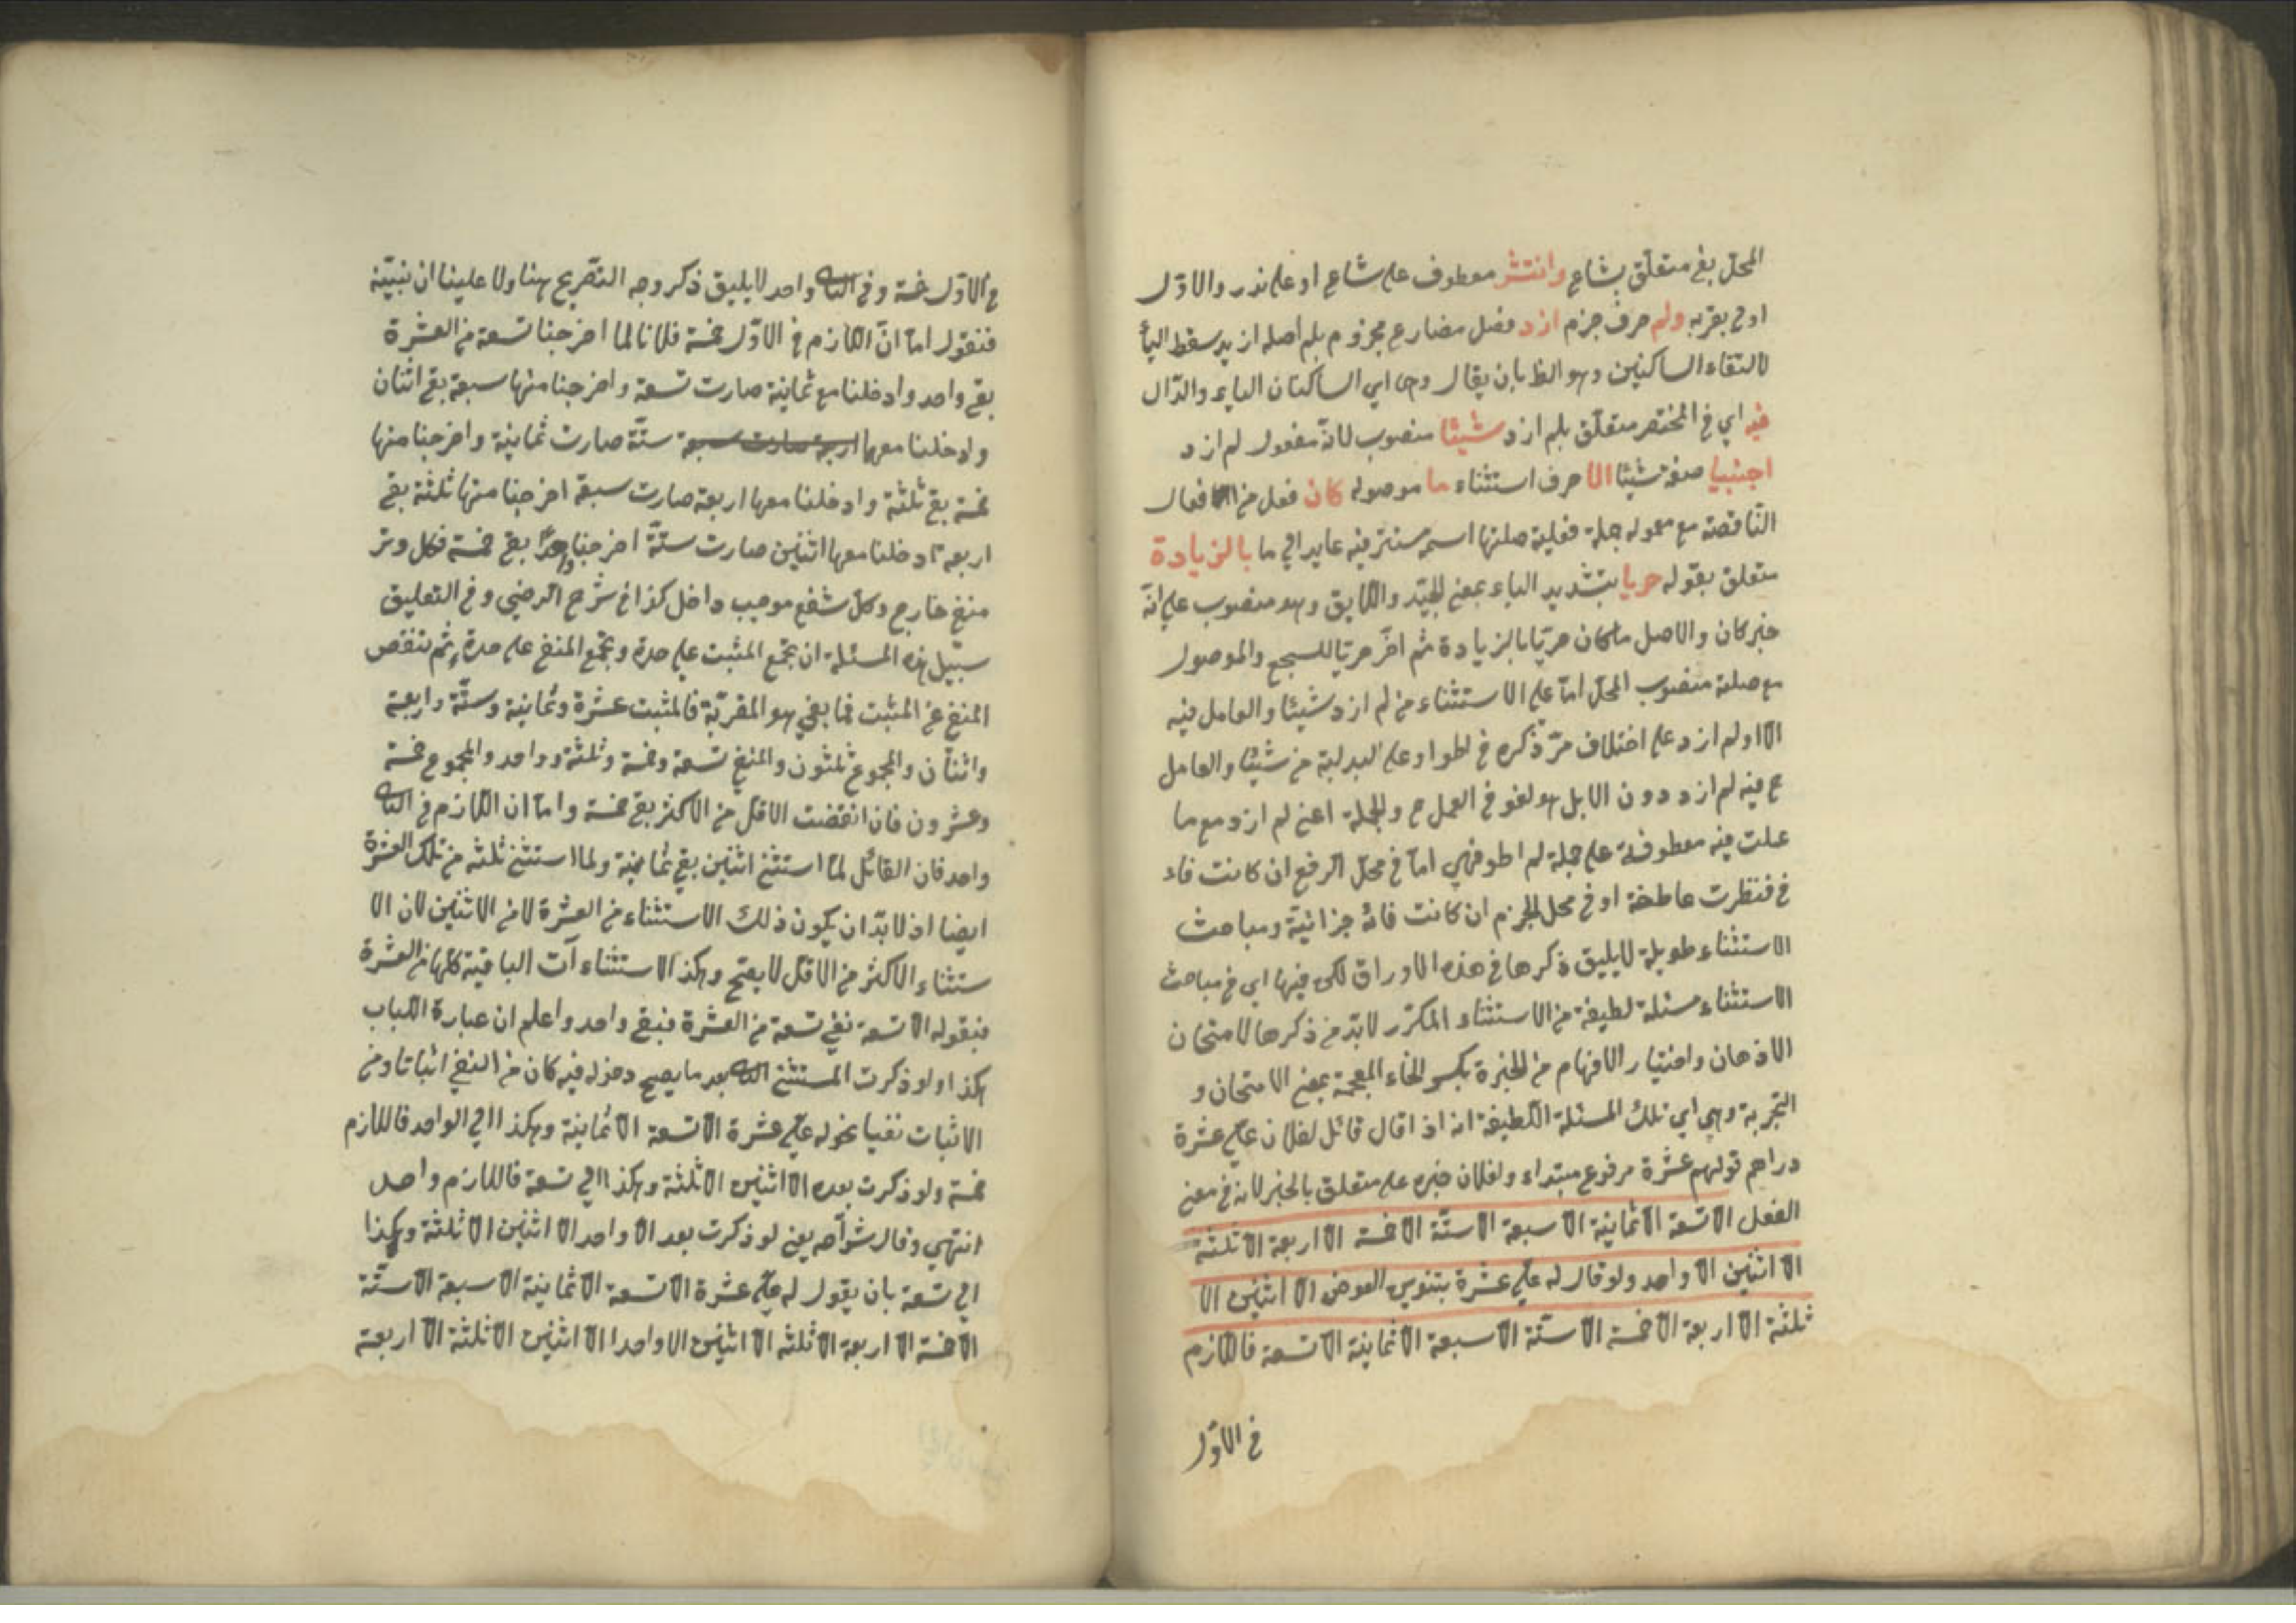 المحل بفي متعلق بشاع وانتشر معطوف على شاع او على ندر والاول
اولى بقربه ولم حرف جزم ازد فعل مضارع مجزوم بلم اصله ازيد سقط الياء
لالتقاء الساكنين وهو الظ بان يقال وهما اي الساكنان الياء والدال
فيه اي في المختصر متعلق بلم ازد شيئا منصوب لانه مفعول لم ازد
اجنبيا صفة شيئا الا حرف استثناء ما موصوله كان فعل من الافعال
الناقصة مع معموله جملة فعلية صلتها اسمه مستتر فيه عايد الى ما بالزيادة
متعلق بقوله حريا بتشديد الياء بمعنى الجيد واللايق وهو منصوب على انه
خبر كان والاصل ما كان حريا بالزيادة ثم اخر حريا للسجع والموصول
مع صلته منصوب المحل اما على الاستثناء من لم ازد شيئا والعامل فيه
الا او لم ازد على اختلاف مر ذكره في لطوا وعلى البدلية من شيئا والعامل
ح فيه لم ازد دون الا بل هو لغو في العمل ح والجملة اعني لم ازد مع ما
عملت فيه معطوفة على جملة لم اطو فهي اما في محل الرفع ان كانت فاء
في فنظرت عاطفة او في محل الجزم ان كانت فائه جزائية ومباحث
الاستثناء طويلة لا يليق ذكرها في هذه الاوراق لكن فيها اي في مباحث
الاستثناء مسئلة لطيفة من الاستثناء المكرر لا بد من ذكرها لامتحان
الاذهان واختيار الافهام من الخبرة بكسر الخاء المعجمة بمعنى الامتحان و
التجربة وهي اي تلك المسئلة اللطيفة انه اذا قال قائل لفلان علي عشرة
دراهم قولهم عشرة مرفوع مبتداء ولفلان خبره على متعلق بالخبر لانه في معنى
الفعل الا تسعة الا ثمانية الا سبعة الا ستة الا خمسة الا اربعة الا ثلثة
الا اثنين الا واحد ولو قال له علي عشرة بتنوين العوض الا اثنين الا
ثلثة الا اربعة الا خمسة الا ستة الا سبعة الا ثمانية الا تسعة فاللازم
في الاول
في الاول خمسة وفي الثاني واحد لا يليق ذكر وجه التصريح هنا ولا علينا ان نبينه
فنقول اما ان اللازم في الاول خمسة فلانا لما اخرجنا تسعة من العشرة
بقي واحد وادخلنا مع ثمانية صارت تسعة واخرجنا منها سبعة بقي اثنان
وادخلنا معهما اربعة صارت سبعة ستة صارت ثمانية واخرجنا منها
خمسة بقي ثلثة وادخلنا معها اربعة صارت سبعة اخرجنا منها ثلثة بقي
اربعة ادخلنا معها اثنين صارت ستة اخرجنا واحدا بقي خمسة فكل وتر
منفي خارج وكل شفع موجب داخل كذا في شرح الرضي وفي التعليق
سبيل هذه المسئلة ان تجمع المثبت على حدة وتجمع المنفي على حدة ثم تنقص
المنفي عن المثبت فما بقي هو المقر به فالمثبت عشرة وثمانية وستة واربعة
واثنان والمجموع ثلثون والمنفي تسعة وخمسة وثلثة وواحد والمجموع خمسة
وعشرون فان انقضت الاقل من الاكثر بقي خمسة واما ان اللازم في الثاني
واحد فان القائل لما استثنى اثنين بقي ثمانية ولما استثنى ثلثه من تلك العشرة
ايضا اذ لا بد ان يكون ذلك الاستثناء من العشرة لا من الاثنين لان الا
ستثناء الاكثر من الاقل لا يصح وهكذا الاستثناءآت الباقية كلها من العشرة
فبقوله الا تسعة نفي تسعة من العشرة فبقي واحد واعلم ان عبارة اللباب
هكذا ولو ذكرت المستثنى الثاني بعد ما يصح دخوله فيه كان من النفي اثباتا ومن
الاثبات نفيا نحو له علي عشرة الا تسعة الا ثمانية وهكذا الى الواحد فاللازم
خمسة ولو ذكرت بعده الا اثنين الا ثلثة وهكذا الى تسعة فاللازم واحد
انتهي وقال شراحه يعني لو ذكرت بعد الا واحد الا اثنين الا ثلثة وهكذا
الى تسعة بان يقول له علي عشرة الا تسعة الا ثمانية الا سبعة الا ستة
الا خمسة الا اربعة الا ثلثه الا اثنين الا واحدا الا اثنين الا ثلثة الا اربعة